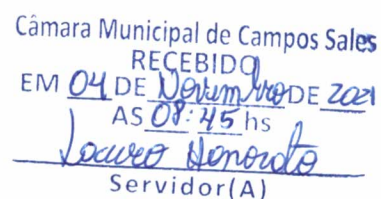 Câmara Municipal de Campos Sales
RECEBIDO
EM 04 DE Novembro DE 2021
AS 08:45 hs
Honorato
Servidor(A)